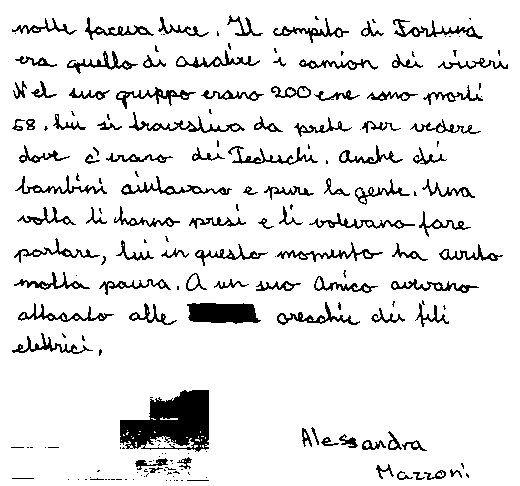 notte faceva luce. Il compito di Fortuna
era quello di assalire i camion dei viveri
Nel suo gruppo erano 200 e ne sono morti
58. Lui si travestiva da prete per vedere
dove c'erano dei Tedeschi. Anche dei
bambini aiutavano e pure la gente. Una
volta li hanno presi e li volevano fare
parlare, lui in questo momento ha avuto
molta paura. A un suo Amico avevano
attacato alle orecchie dei fili
elettrici.
Alessandra
Mazzoni